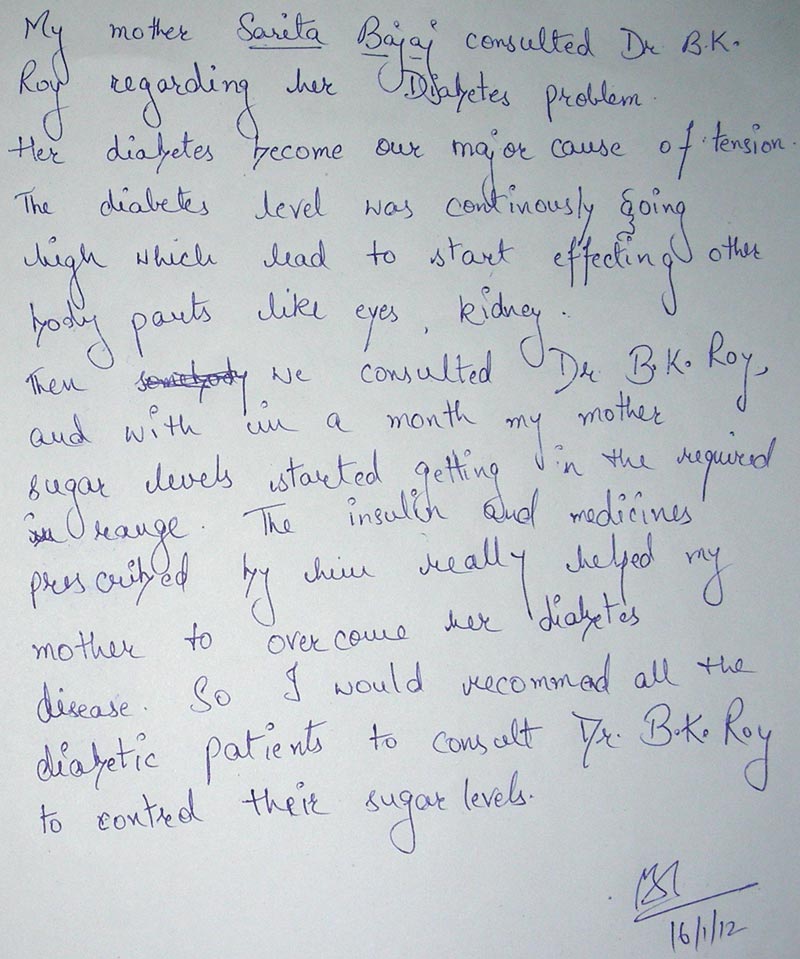 My mother Sarita Bajaj consulted Dr B.K.
Roy regarding her Diabetes problem.
Her diabetes become our major cause of tension.
The diabetes level was continously going
high which lead to start effecting other
body parts like eyes, kidney.
Then somebody we consulted Dr B.K. Roy,
and with in a month my mother
sugar levels started getting in the required
in range. The insulin and medicines
prescribed by him really helped my
mother to overcome her diabetes
disease. So I would recommed all the
diabetic patients to consult Dr. B.K. Roy
to control their sugar levels.
16/1/12